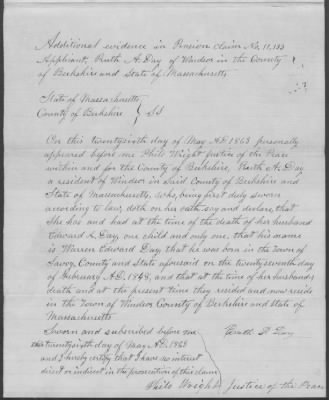 Additional evidence in Pension claim No. 11,133
Applicant, Ruth A. Day of Windsor in the County
of Berkshire and State of Massachusetts
State of Massachusetts
County of Berkshire } SS
On this twentysixth day of May A.D. 1863 personally
appeared before me Philo Wright Justice of the Peace
within and for the County of Berkshire, Ruth A. Day
a resident of Windsor in said County of Berkshire and
State of Massachusetts, who, being first duly sworn
according to law, doth on her oath say and declare, that
She has and had at the time of the death of her husband
Edward L. Day, one child and only one, that his name
is Warren Edward Day, that he was born in the Town of
Savoy, County and State aforesaid on the twentyseventh day
of February A.D. 1848, and that at the time of her husbands
death and at the present time they resided and now reside
in the Town of Windsor County of Berkshire and State of
Massachusetts
Sworn and subscribed before me Ruth A. Day
this twentysixth day of May A.D. 1863
and I hereby certify that I have no interest
direct or indirect in the prosecution of this claim
Philo Wright Justice of the Peace